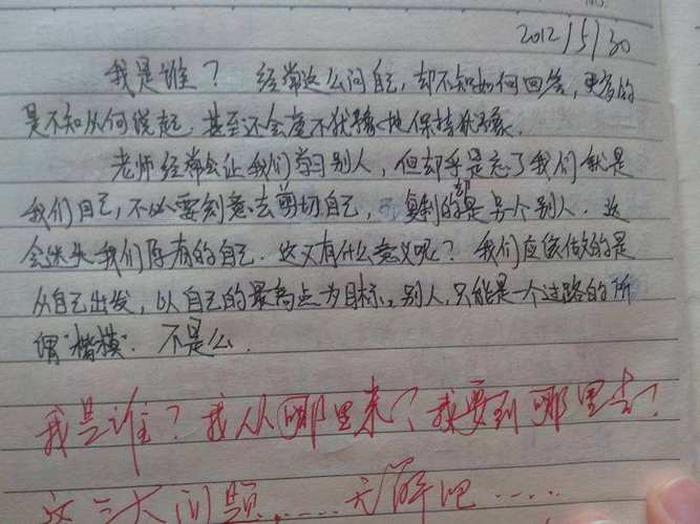 2012/5/30
我是谁? 经常这么问自己,却不知如何回答,更多的
是不知从何说起,甚至还会毫不犹豫地保持犹豫。
老师经常会让我们学习别人,但却乎是忘了我们就是
我们自己,不必要刻意去剪切自己,复制的却是另个别人.这
会迷失我们原有的自己.这又有什么意义呢?我们应该做的是
从自己出发,以自己的最高点为目标。别人,只能是一个过路的所
谓"楷模".不是么.
我是谁?我从哪里来?我要到哪里去?
这三大问题......无解吧.....